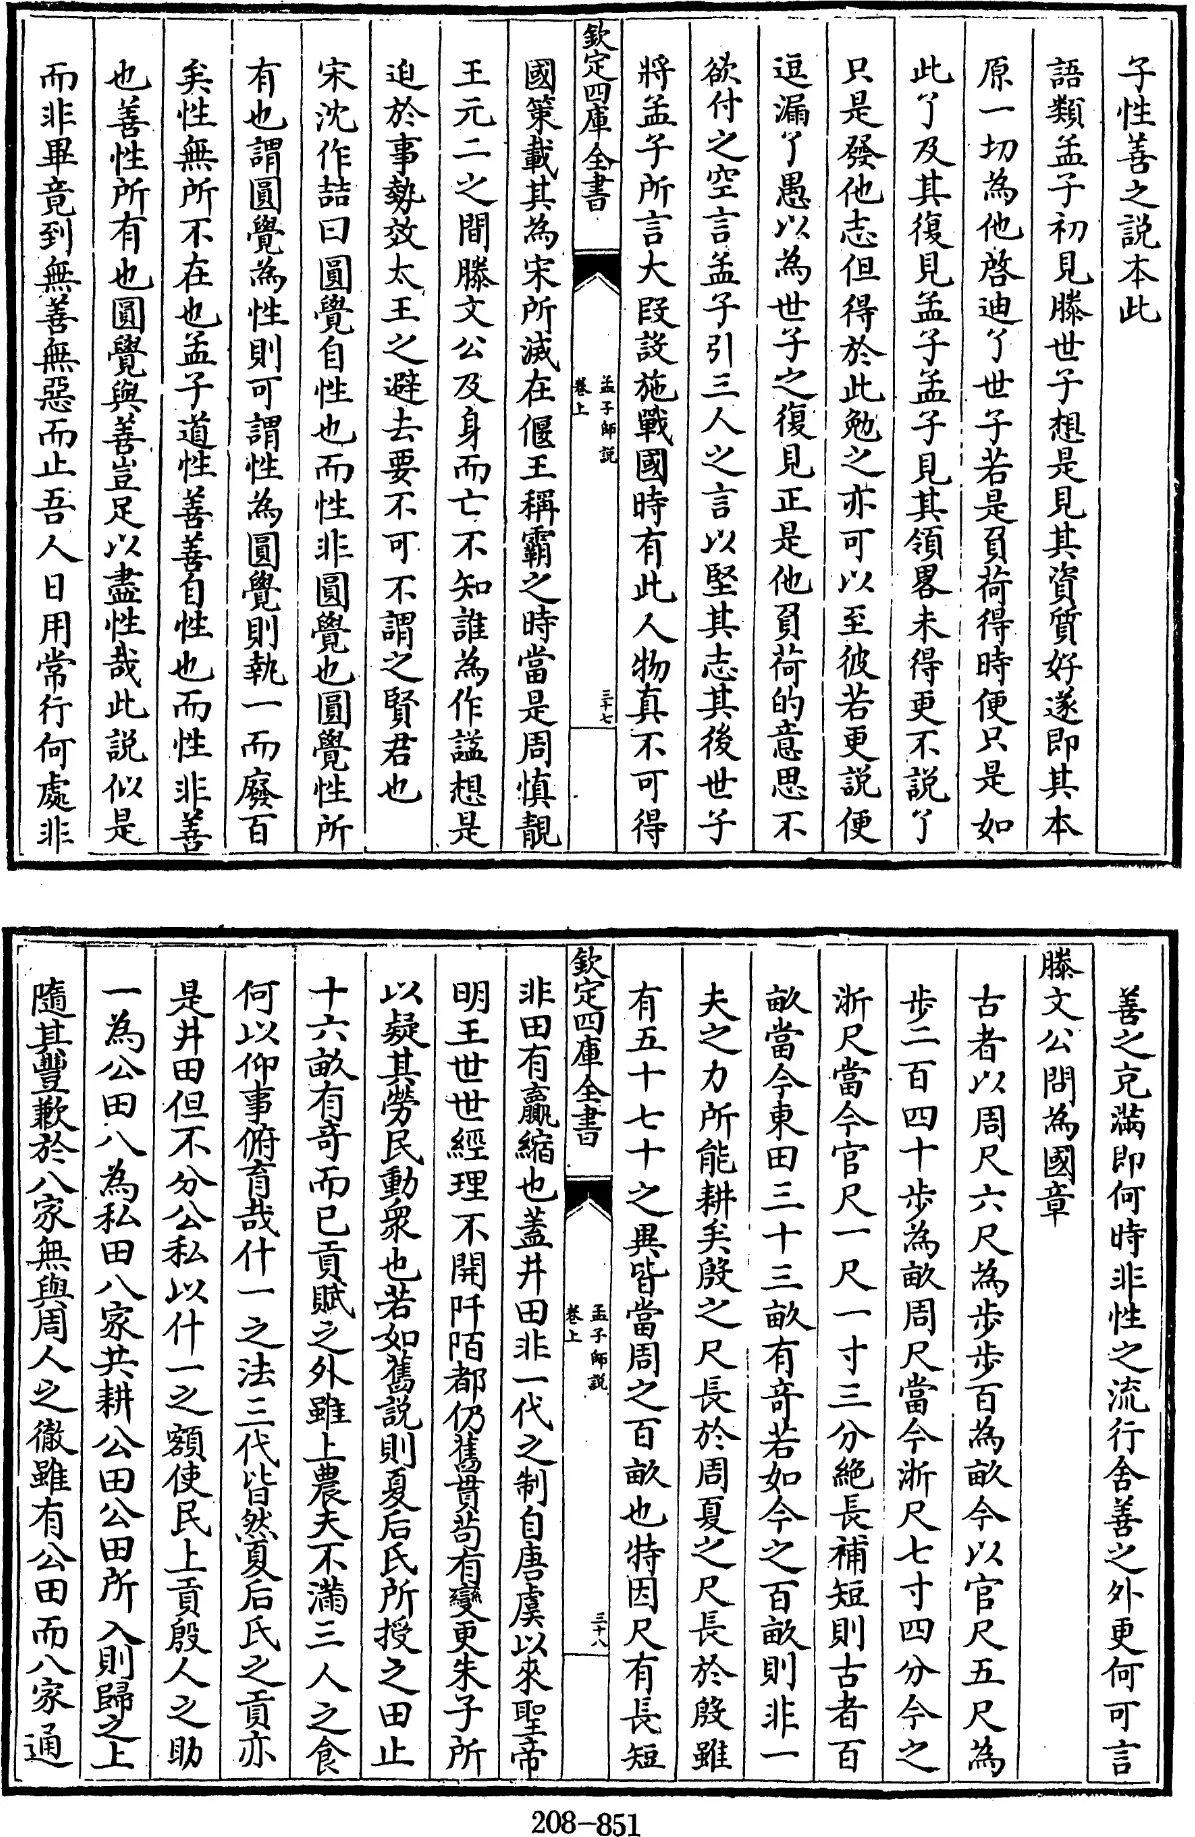 子性善之説本此
語類孟子初見滕世子想是見其資質好遂即其本
原一切為他啓迪了世子若是負荷得時便只是如
此了及其復見孟子孟子見其領畧未得更不説了
只是發他志但得於此勉之亦可以至彼若更説便
逗漏了愚以為世子之復見正是他負荷的意思不
欲付之空言孟子引三人之言以堅其志其後世子
將孟子所言大段設施戰國時有此人物真不可得
欽定四庫全書
孟子師説
卷上
三十七
國策載其為宋所滅在偃王稱霸之時當是周慎靚
王元二之間滕文公及身而亡不知誰為作謚想是
迫於事勢效太王之避去要不可不謂之賢君也
宋沈作喆曰圓覺自性也而性非圓覺也圓覺性所
有也謂圓覺為性則可謂性為圓覺則執一而廢百
矣性無所不在也孟子道性善善自性也而性非善
也善性所有也圓覺與善豈足以盡性哉此説似是
而非畢竟到無善無惡而止吾人日用常行何處非
善之充滿即何時非性之流行舍善之外更何可言
滕文公問為國章
古者以周尺六尺為步步百為畝今以官尺五尺為
步二百四十步為畝周尺當今浙尺七寸四分今之
浙尺當今官尺一尺一寸三分絶長補短則古者百
畝當今東田三十三畝有竒若如今之百畝則非一
夫之力所能耕矣殷之尺長於周夏之尺長於殷雖
有五十七十之異皆當周之百畝也特因尺有長短
欽定四庫全書
孟子師説
卷上
三十八
非田有贏縮也蓋井田非一代之制自唐虞以來聖帝
明王世世經理不開阡陌都仍舊貫茍有變更朱子所
以疑其勞民動衆也若如舊説則夏后氏所授之田止
十六畝有竒而已貢賦之外雖上農夫不滿三人之食
何以仰事俯育哉什一之法三代皆然夏后氏之貢亦
是井田但不分公私以什一之額使民上貢殷人之助
一為公田八為私田八家共耕公田公田所入則歸之上
隨其豐歉於八家無與周人之徹雖有公田而八家通
208-851